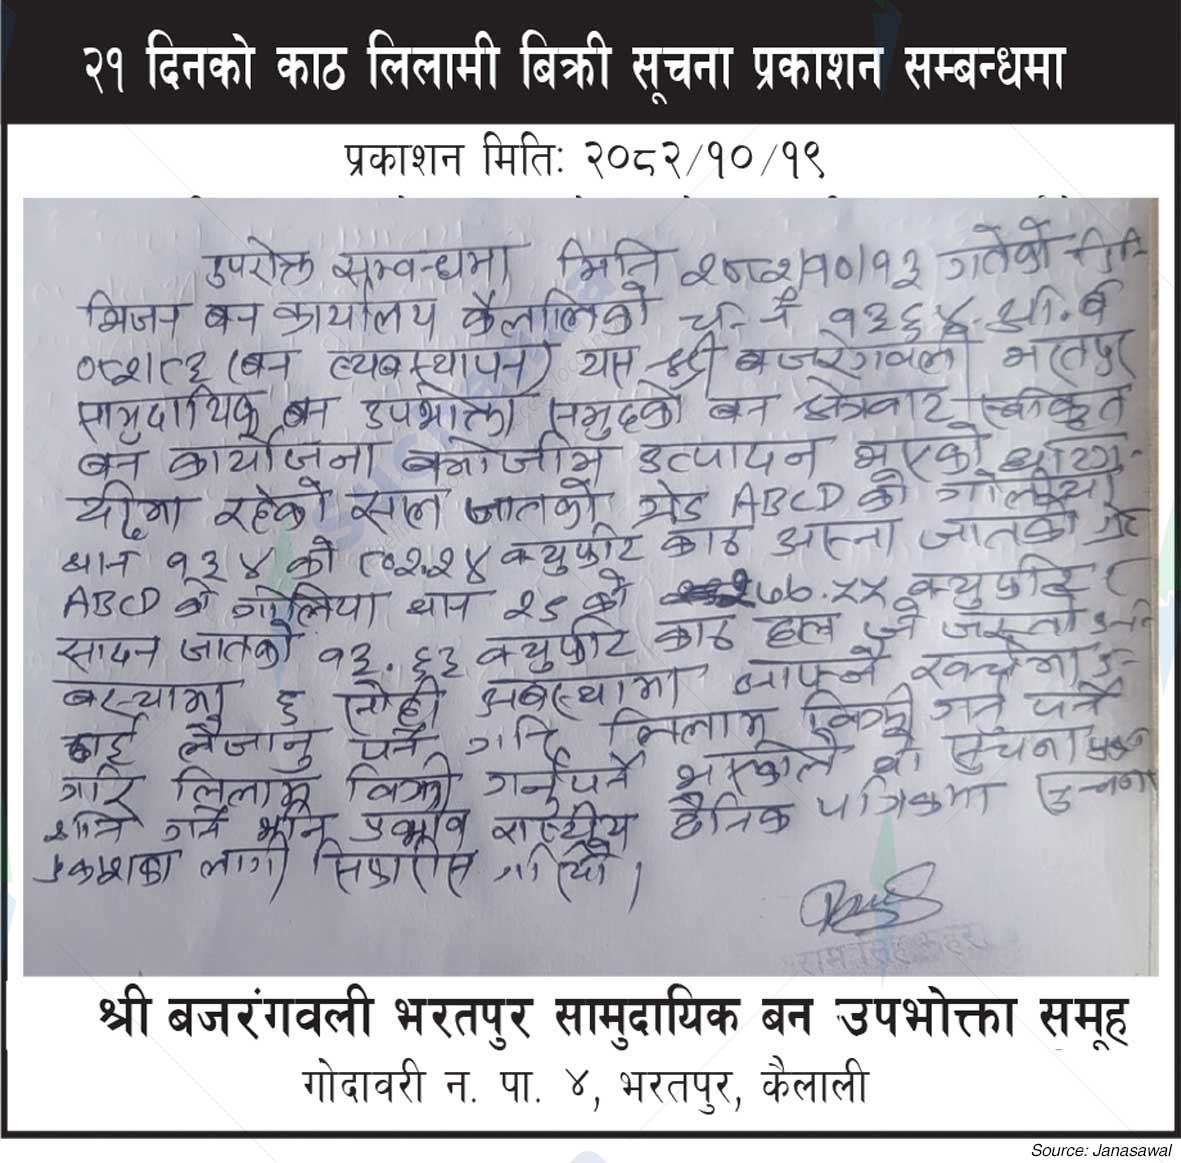 २१ दिनको काठ लिलामी बिक्री सूचना प्रकाशन सम्बन्धमा
प्रकाशन मितिः २०८२/१०/१९
उपरोक्त सम्वन्धमा मिति २०८२/१०/१३ गतेको डि-
भिजन बन कार्यालय कैलालिको च.नं १३६४ आ.ब
०८२/८३ (बन व्यबस्थापन) यस श्री बजरंगवली भरतपुर
सामुदायिक बन उपभोक्ता समुहको बन क्षेत्रबाट स्वीकृत
बन कार्ययोजना बमोजीम उत्पादन भएको घाटग-
द्दीमा रहेको साल जातको ग्रेड ABCD को गोलीया
थान १३४ को ८०२.२४ क्युफिट काठ अस्ना जातको ग्रेड
ABCD को गोलिया थान २८ को ७७.५५ क्युफिट
सादन जातको १३.६३ क्युफिट काठ हाल जे जस्तो
बस्थामा छ सोही अबस्थामा आफ्नै
लैजानु पर्ने गरि लिलाम बिक्री गर्न पर्ने
गरि लिलाम बिक्री गर्नुपर्ने भएकोले यो सुचना
गर्न भनि राष्ट्रीय दैनिक पत्रिकामा
प्रकाशका लागी सिफारीस गरिदियौ।
श्री बजरंगवली भरतपुर सामुदायिक बन उपभोक्ता समूह
गोदावरी न. पा. ४, भरतपुर, कैलाली
Source: Janasawal